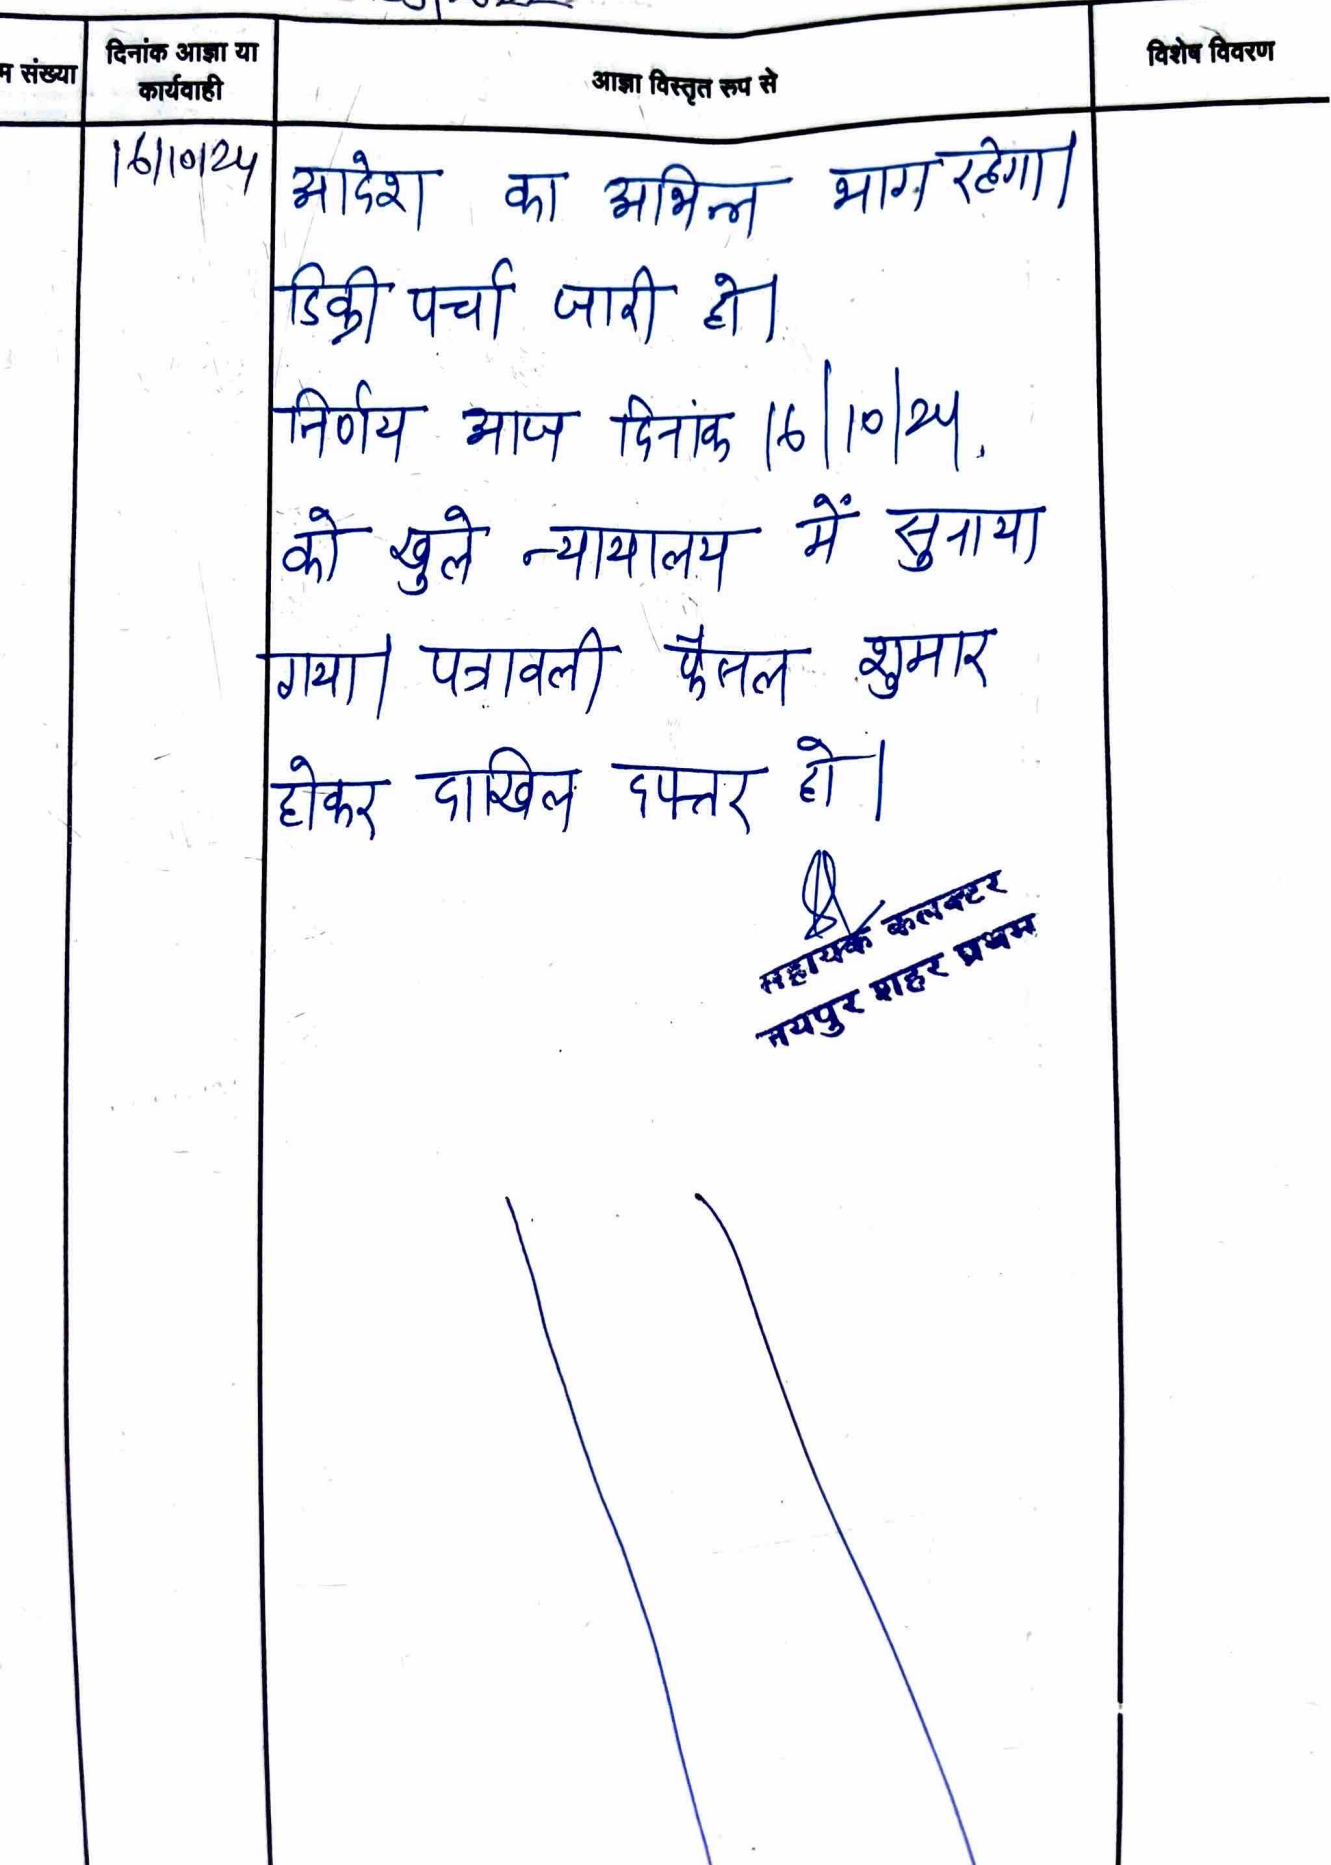 म संख्या
दिनांक आज्ञा या
कार्यवाही
आज्ञा विस्तृत रुप से
विशेष विवरण
16/10/24
आदेश का अभिन्न भाग रहेगा।
डिक्री पर्चा जारी हो।
निर्णय आज दिनांक 16/10/24
को खुले न्यायालय में सुनाया
गया। पत्रावली फैसल शुमार
होकर दाखिल दफ्तर हो।
सहायक कलक्टर
जयपुर शहर प्रथम